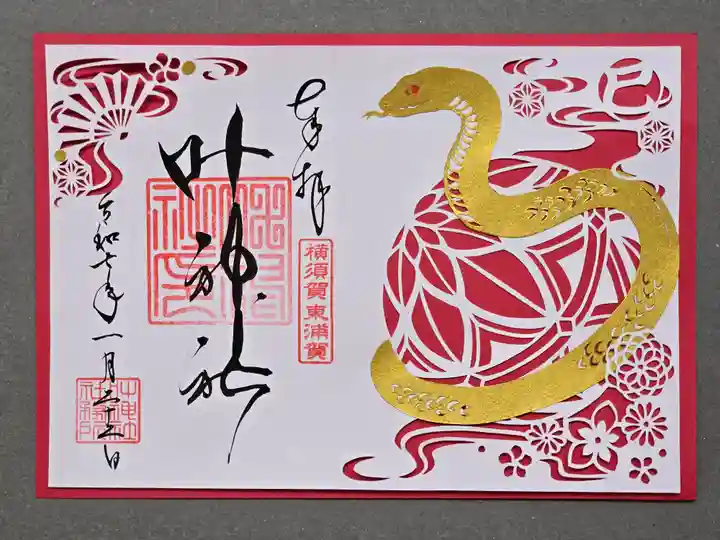 奉拝
横須賀東浦賀
叶神社
令和七年一月二十五日
巳